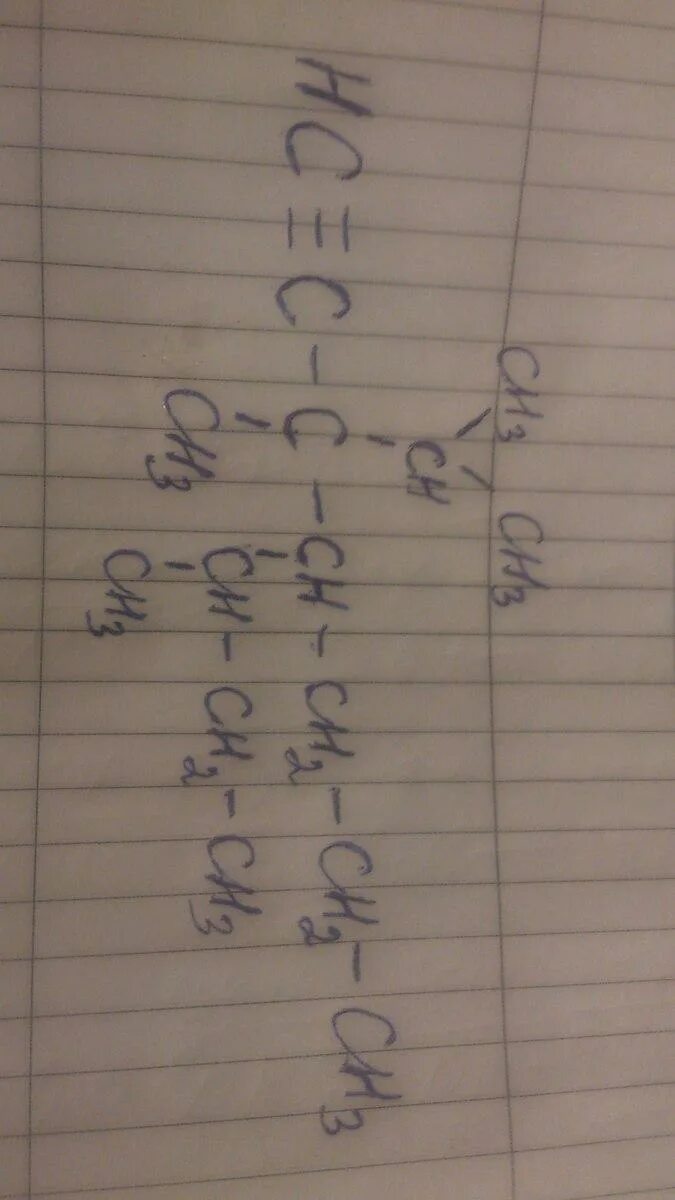 CH3 CH3
CH
HC ≡ C – C – CH – CH2 – CH2 – CH3
CH3 CH – CH2 – CH3
CH3